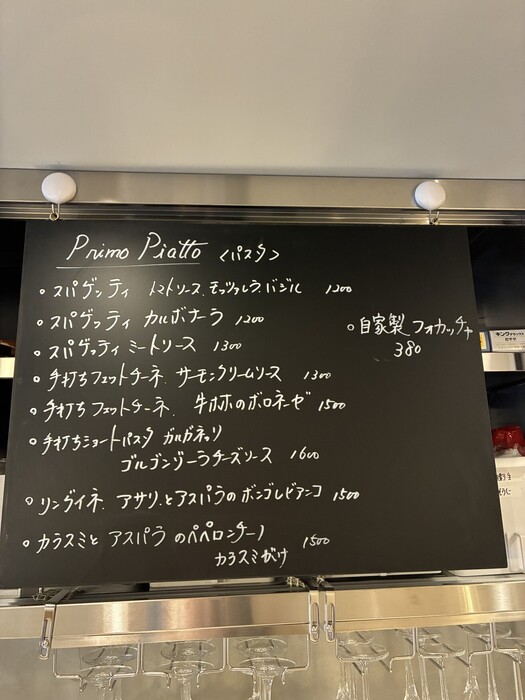 Primo Piatto 〈パスタ〉
。スパゲッティ トマトソース、モッツァレラ バジル 1200
。スパゲッティ カルボナーラ 1200
。スパゲッティ ミートソース 1300
。手打ちフェットチーネ、サーモンクリームソース 1300
。手打ちフェットチーネ、牛ホホのボロネーゼ 1500
。手打ちショートパスタ ガルガネッリ
ゴルゴンゾーラチーズソース 1600
。リングイネ、アサリとアスパラのボンゴレビアンコ 1500
。カラスミと アスパラ のペペロンチーノ
カラスミがけ 1500
。自家製 フォカッチャ
380